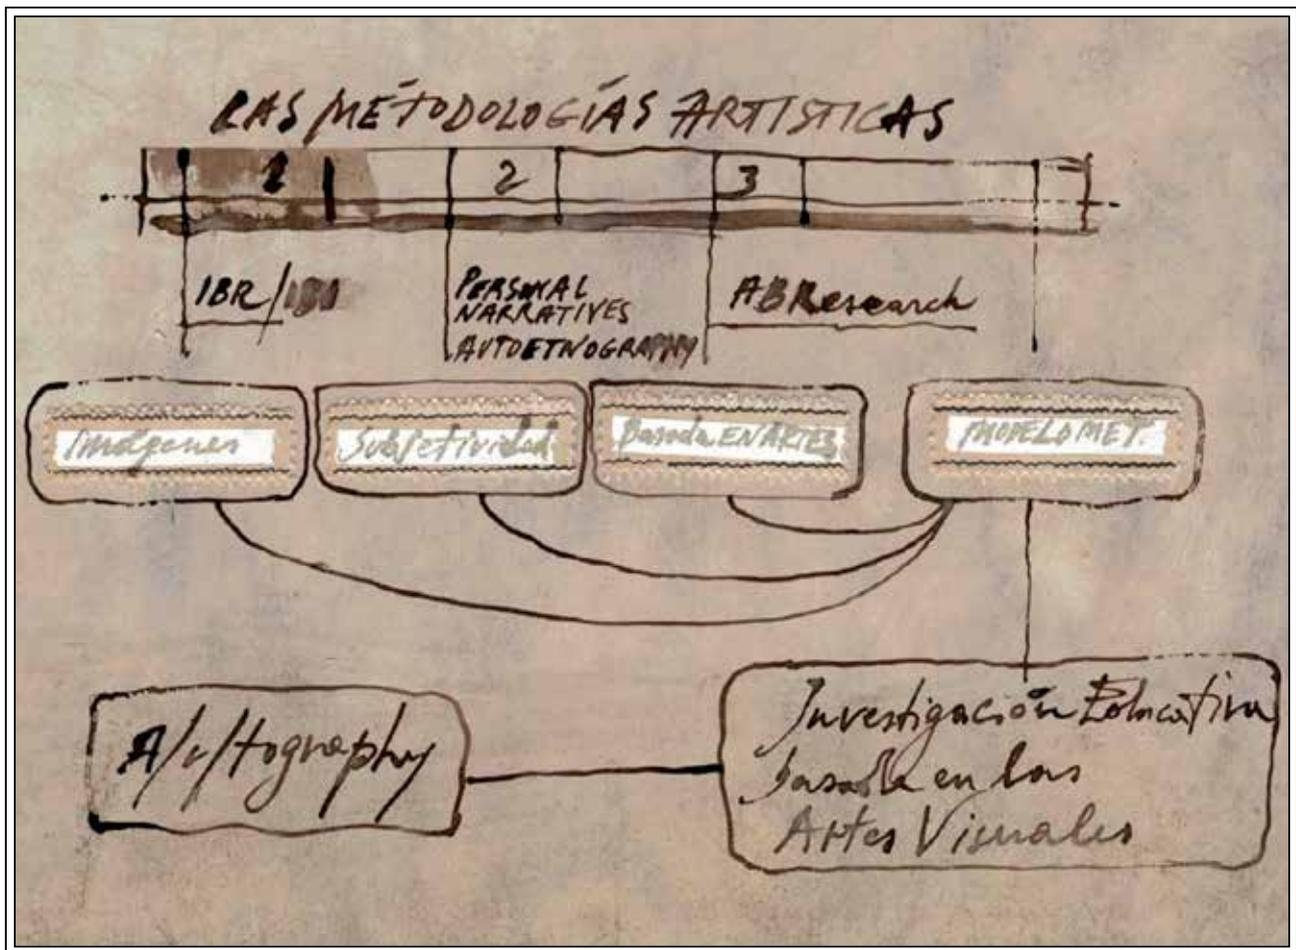 LAS METODOLOGÍAS ARTISTICAS
1 2 3
IBR/
PERSONAL
NARRATIVES
AUTOETNOGRAPHY
ABResearch
Imágenes
Subjetividad
Basada EN ARTES
MODELO MET.
A/r/tography
Investigación Educativa
basada en las
Artes Visuales